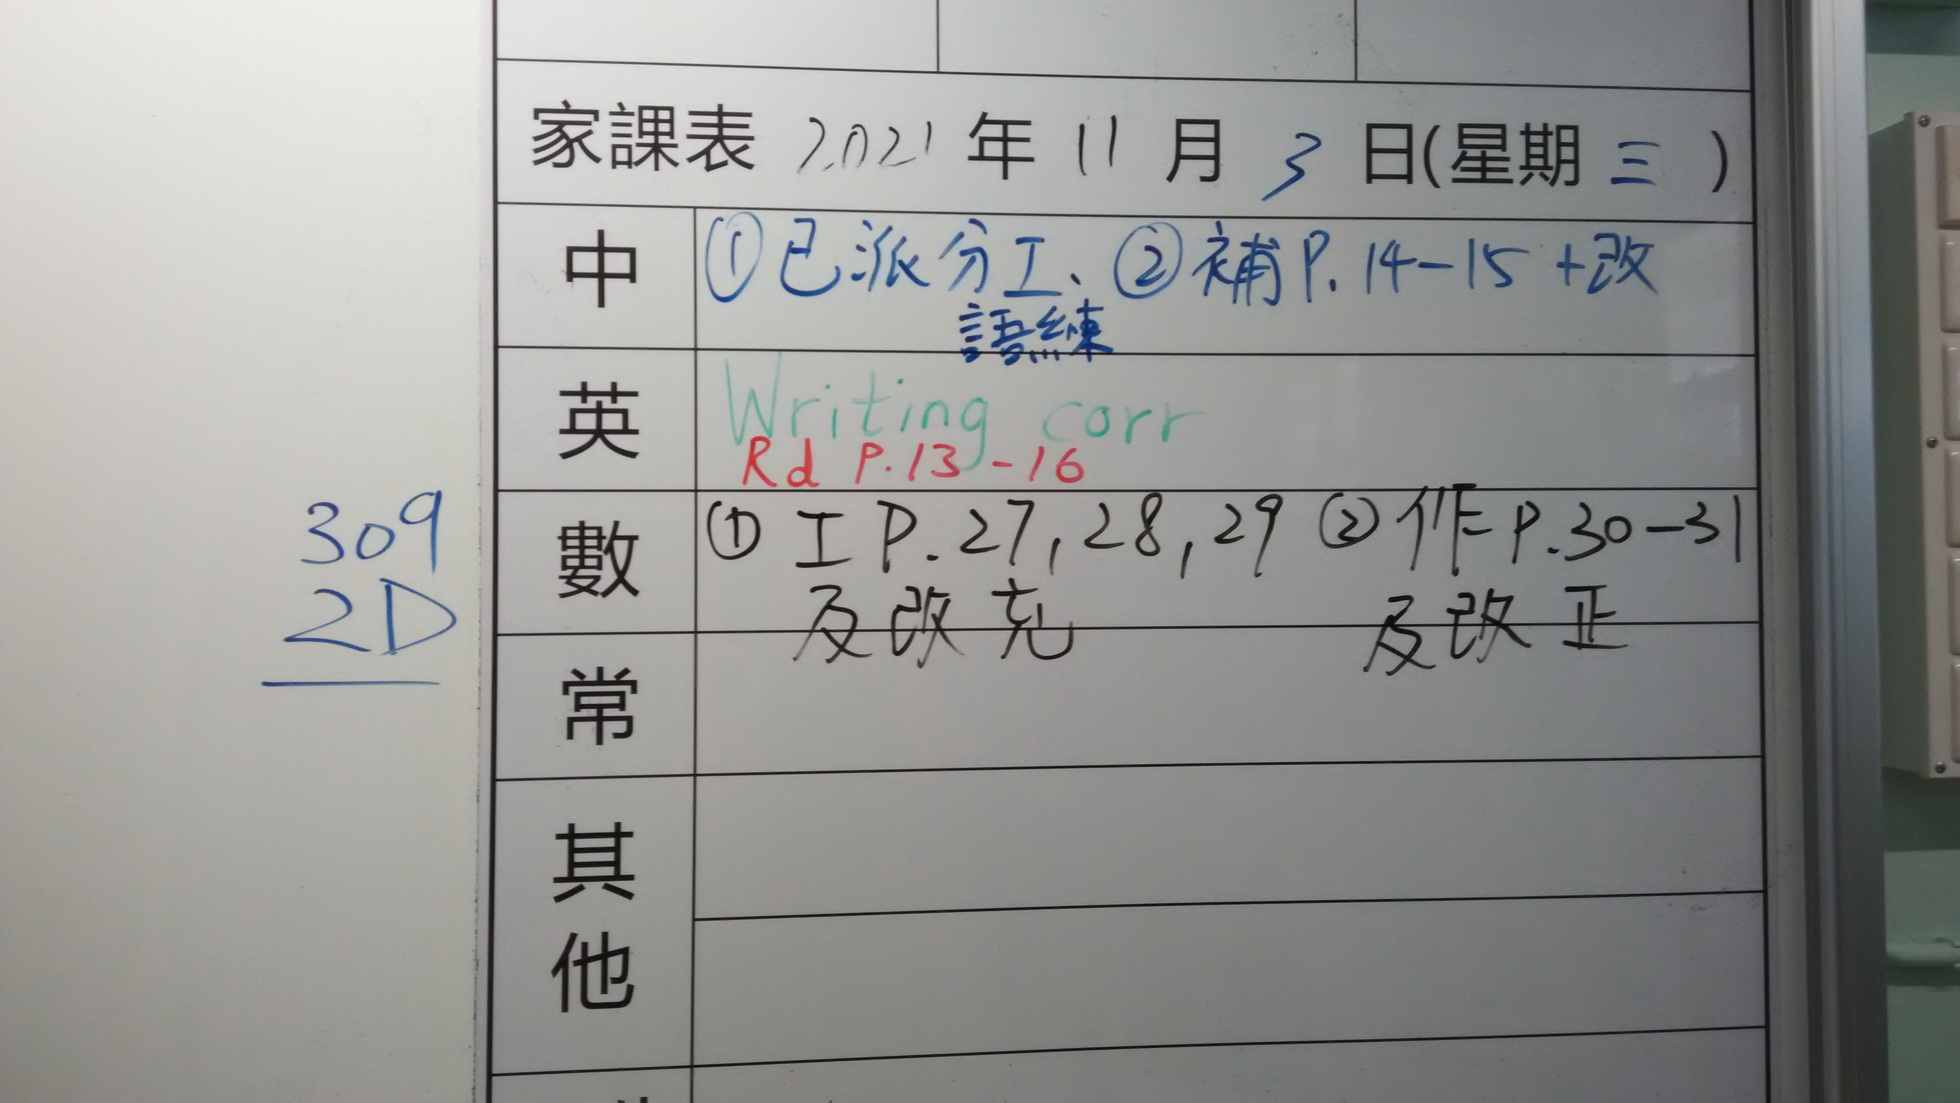 家課表 2021 年 11 月 3 日(星期 三 )
中 ①已派分工、②補P.14-15 +改
語練
英 Writing corr
Rd P.13-16
309
2D
數 ① 工 P.27,28,29 ②作P.30-31
及改充 及改正
常
其
他